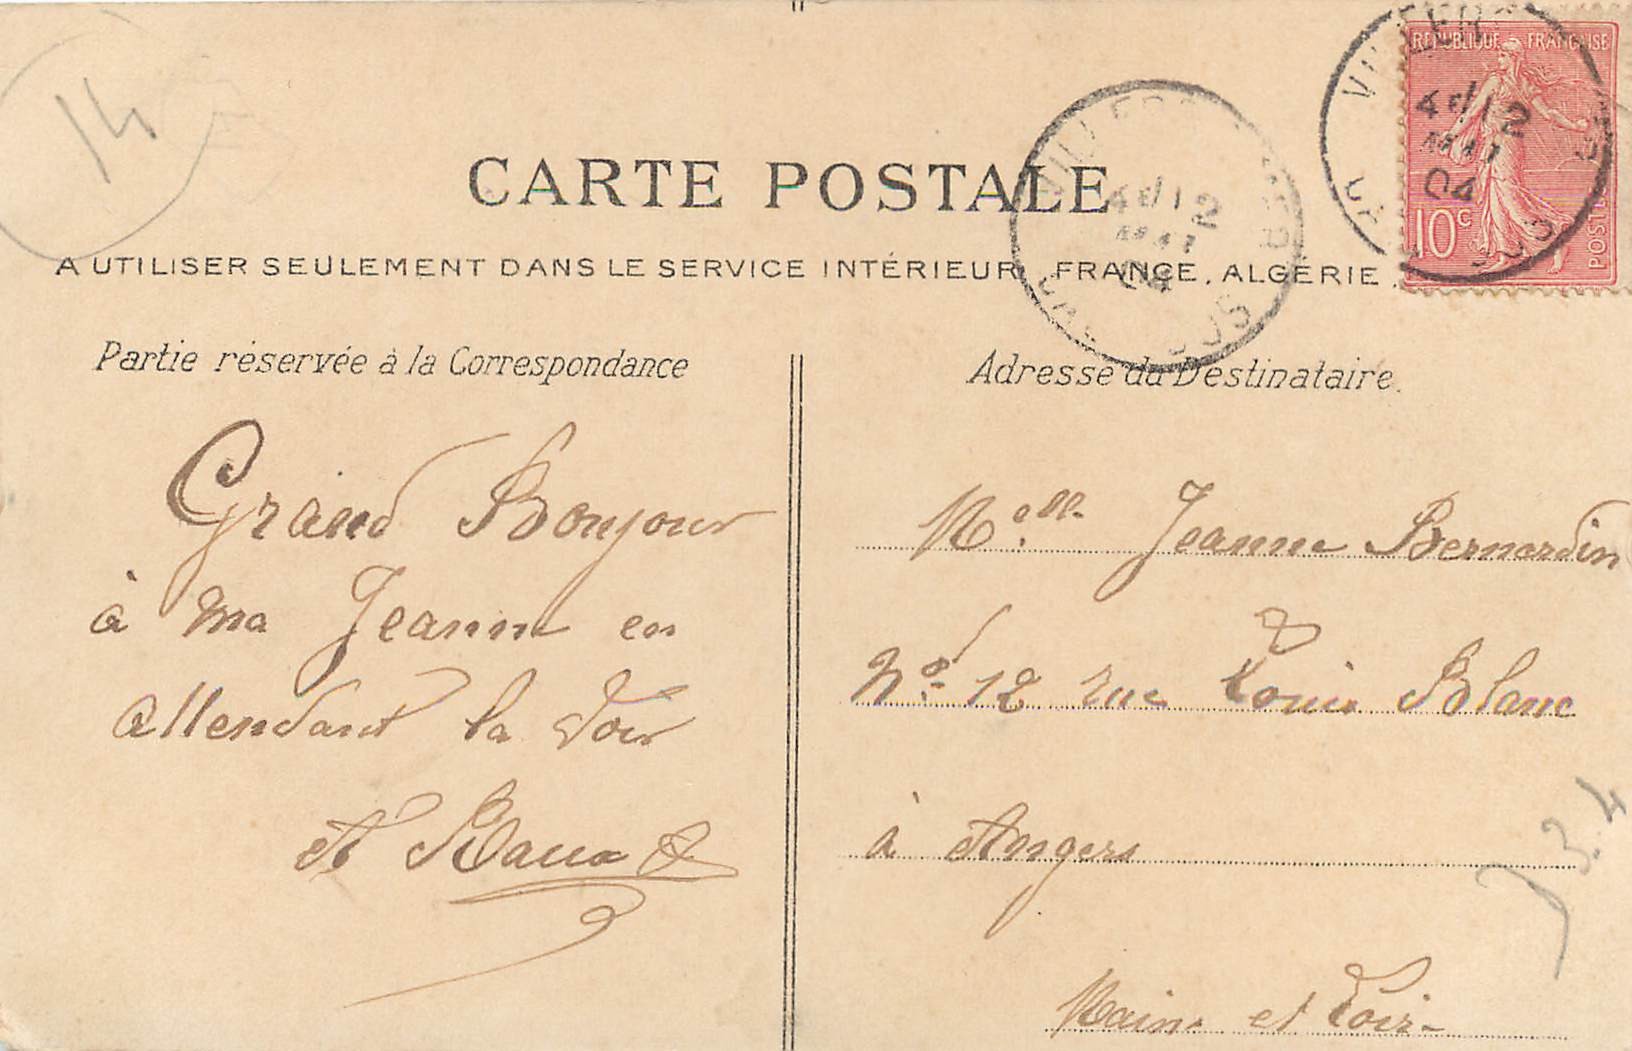 14
CARTE POSTALE
A UTILISER SEULEMENT DANS LE SERVICE INTÉRIEUR, FRANCE, ALGÉRIE.
REPUBLIQUE FRANÇAISE
10c
POSTES
VILLERS
4E / 12
MAI
04
CALVADOS
VILLERS
4E / 12
MAI
04
CALVADOS
Partie réservée à la Correspondance
Grand Bonjour
à ma Jeanne en
attendant la voir
A
Adresse du Destinataire.
Melle Jeanne Bernardin
No 12 rue Louis Blanc
à Angers
Maine et Loire
3.4